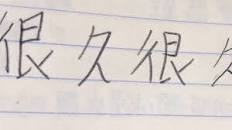 很久很